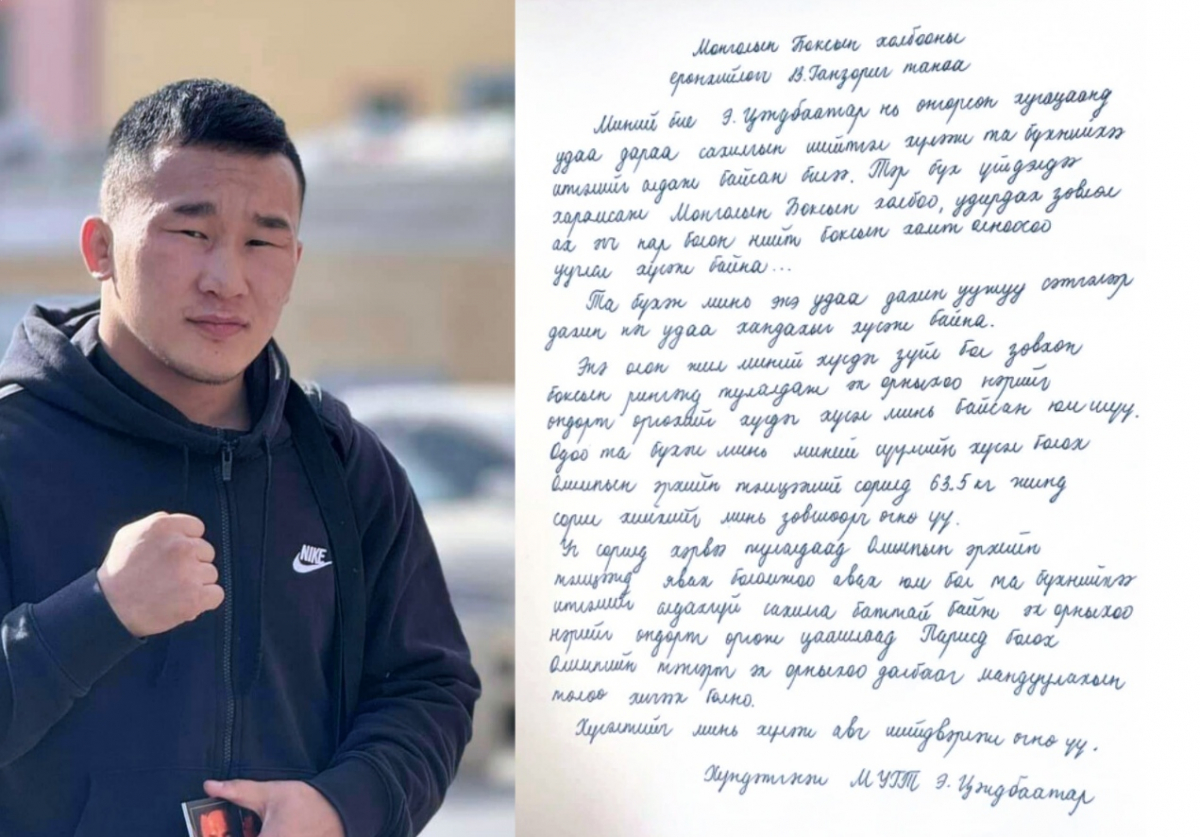 NIKE
Монголын Боксын холбооны
ерөнхийлөгч В.Ганзориг танаа
Миний бие Э.Цэндбаатар нь өнгөрсөн хугацаанд
удаа дараа сахилгын шийтгэл хүлээж та бүхнийхээ
итгэлийг алдаж байсан билээ. Тэр бүх үйлдэлдээ
харамсаж Монголын Боксын холбоо, удирдах зөвлөл
ах эгч нар болон нийт боксын хамт олноосоо
уучлал хүсэж байна...
Та бүхэн минь энэ удаа дахин уужуу сэтгэлээр
дахин нэг удаа хандахыг хүсэж байна.
Энэ олон жил миний хүсдэг зүйл бол зөвхөн
боксын рингэнд тулалдаж эх орныхоо нэрийг
өндөрт өргөхийг хүсдэг хүсэл минь байсан юм шүү.
Одоо та бүхэн минь миний сүүлийн хүсэл болох
Олимпын эрхийн тэмцээний сорилд 63.5 кг жинд
сорил хийхийг минь зөвшөөрч өгнө үү.
Уг сорилд хэрвээ тулалдаад Олимпын эрхийн
тэмцээнд явах боломжоо авах юм бол та бүхнийхээ
итгэлийг алдахгүй сахилга баттай байж эх орныхоо
нэрийг өндөрт өргөж цаашлаад Парисд болох
Олимпийн тэнгэрт эх орныхоо далбааг мандуулахын
төлөө хичээх болно.
Хүсэлтийг минь хүлээж авч шийдвэрлэж өгнө үү.
Хүндэтгэсэн МУГТ Э.Цэндбаатар